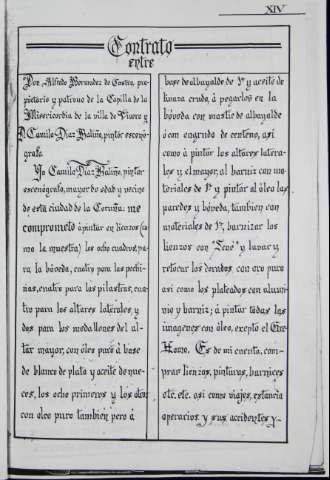 XIV
Contrato
entre
Don Alfredo Hernandez de Castro, pro-
pietario y patrono de la Capilla de la
Misericordia de la villa de Vivero y
D. Camilo Diaz Baliño, pintor escenó-
grafo
Yo Camilo Diaz Baliño, pintor
escenógrafo, mayor de edad y vecino
de esta ciudad de la Coruña: me
comprometo á pintar en lienzos (co
mo la muestra) los ocho cuadros, pa-
ra la bóveda, cuatro para las pechi-
nas, cuatro para las pilastras, cua-
tro para los altares laterales, y
dos para los medallones del al-
tar mayor, con óleo puro á base
de blanco de plata y aceite de nue-
ces, los ocho primeros y los otros
con oleo puro tambien pero á
base de albayalde de 1ª y aceite de
linaza crudo, á pegarlos en la
bóveda con mastic de albayalde
ó con engrudo de centeno, asi
como á pintar los altares latera-
les y el mayor, al barniz con ma-
teriales de 1ª y pintar al óleo las
paredes y bóveda, tambien con
materiales de 1ª, barnizar los
lienzos con "Zoné" y lavar y
retocar los dorados con oro puro
asi como los plateados con alumi-
nio y barniz; á pintar todas las
imagenes con óleo, excepto el Ecce
Homo. Es de mi cuenta, com-
prar lienzos, pinturas, barnices
etc. etc. asi como viajes, estancia
operarios y sus accidentes y-